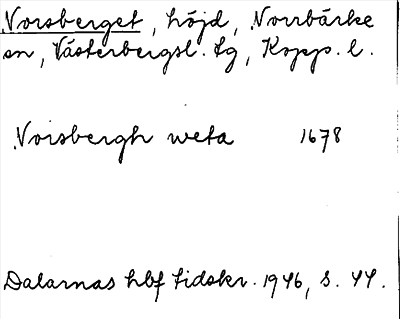 Vorsberget, höjd, Norrbärke
sn, Västerbergsl. tg, Kopp. l.
Vorsbergh weta 1678
Dalarnas hbf tidskr. 1946, s. 44.